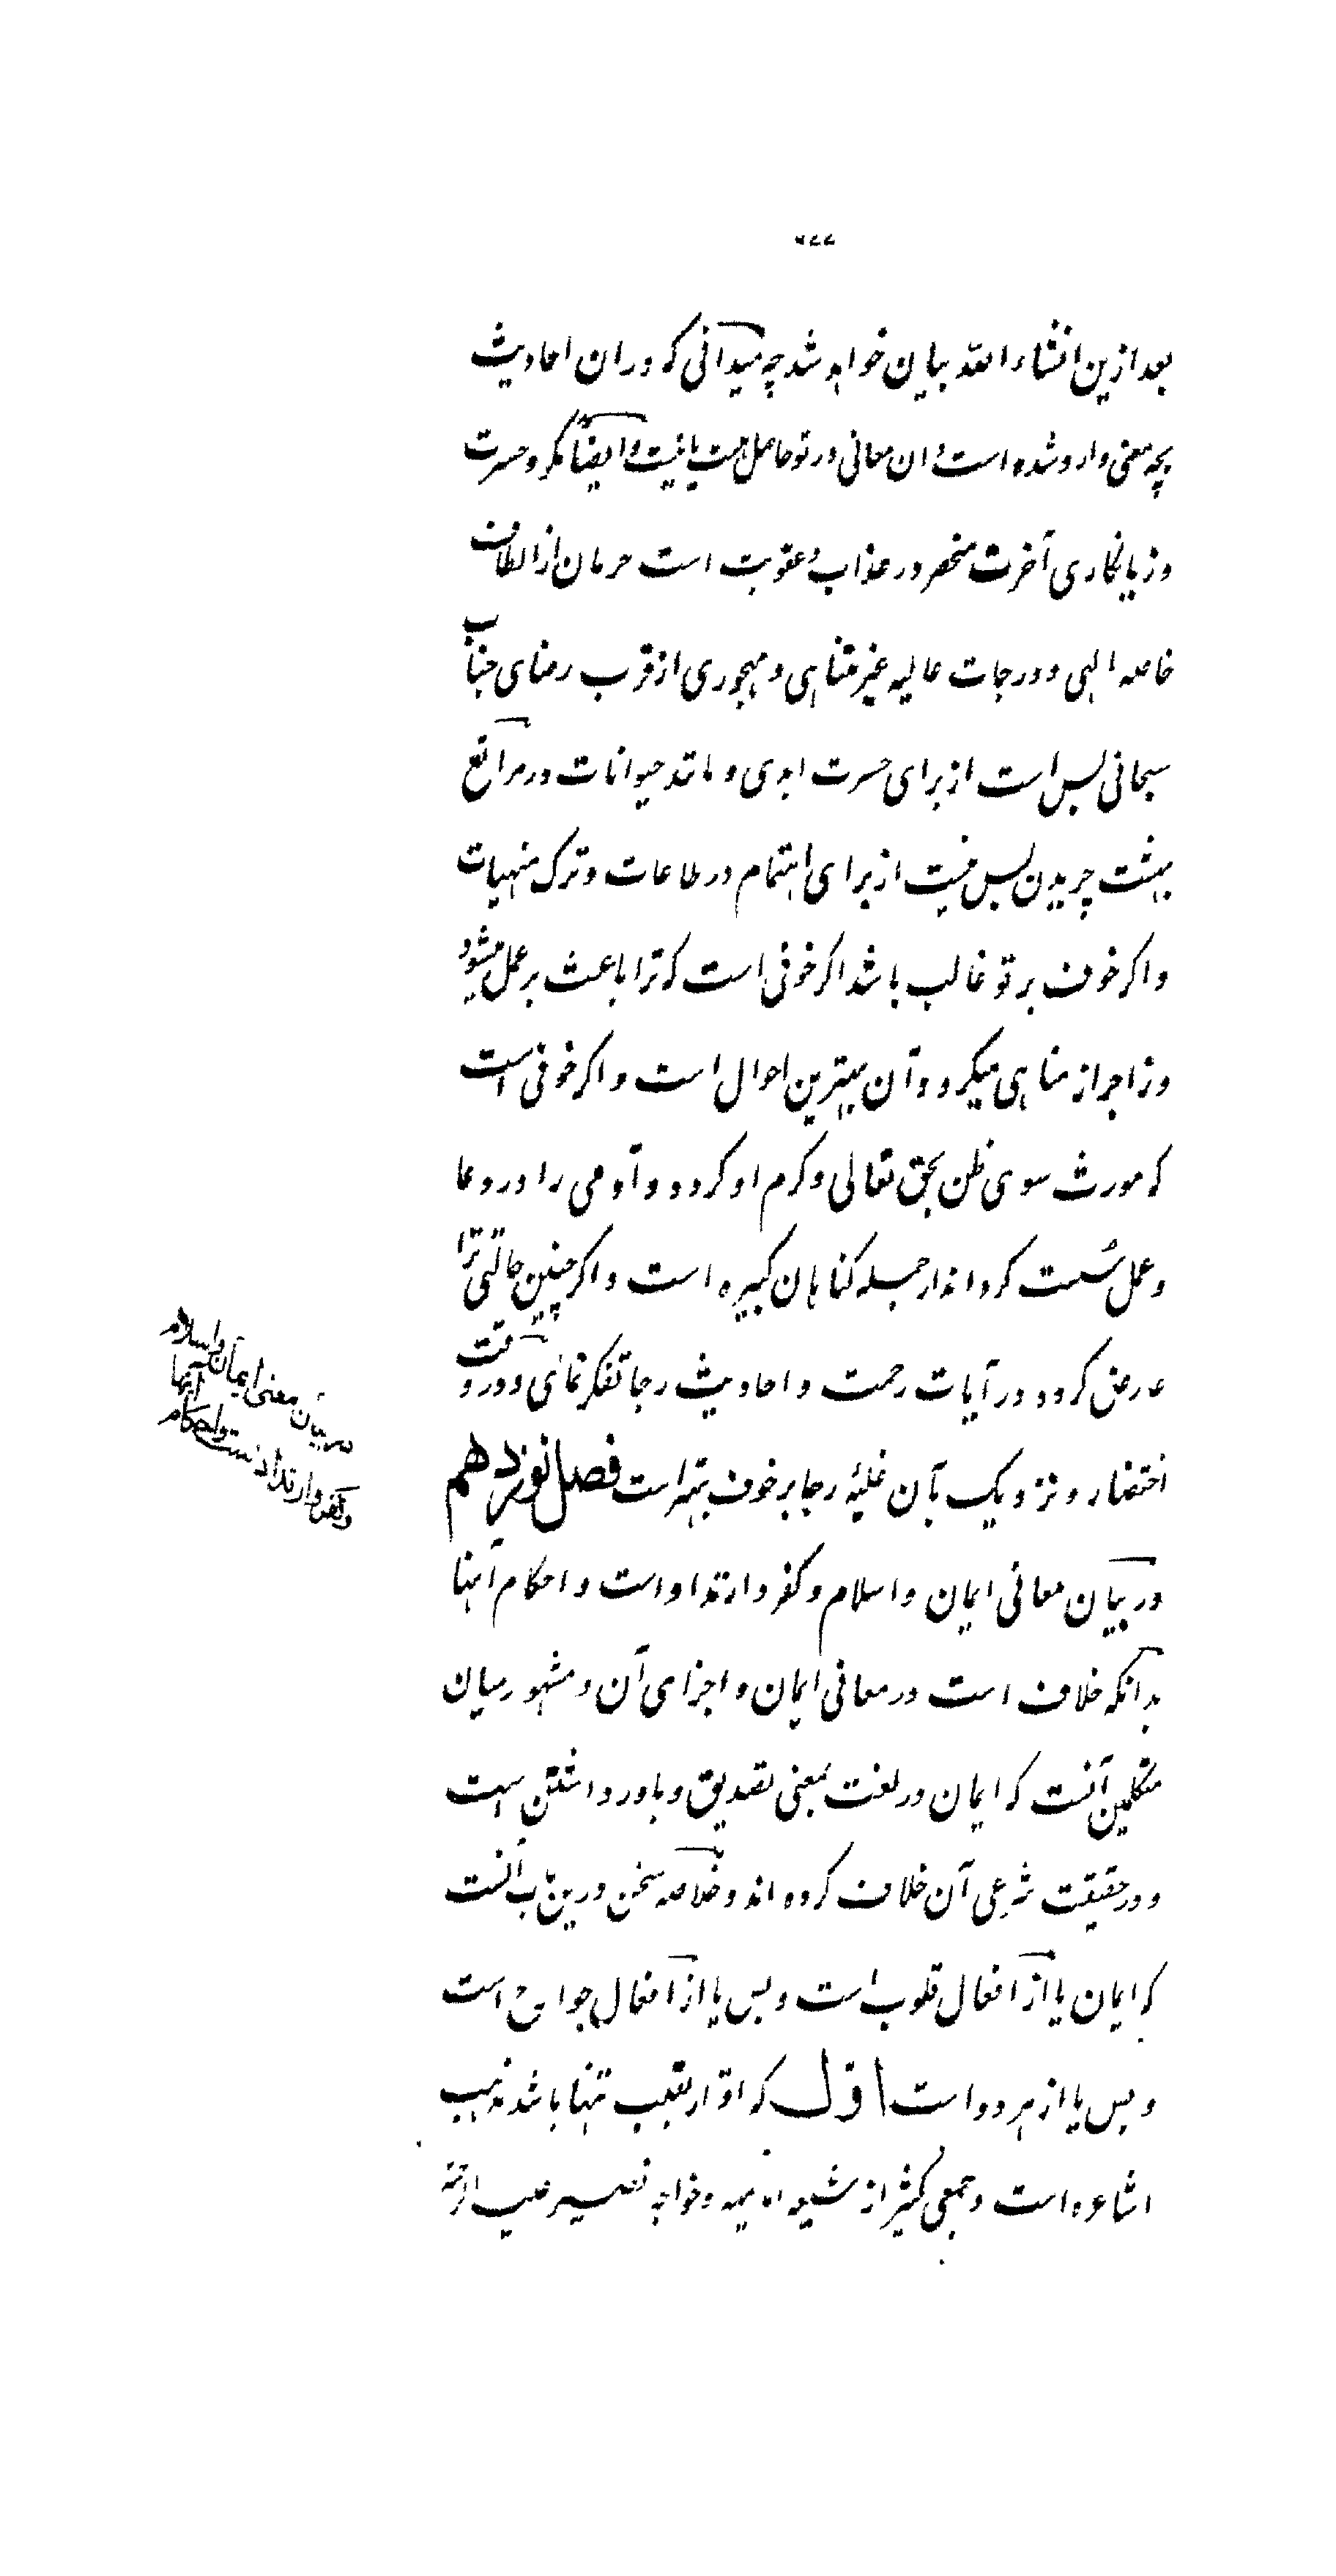 بعد ازین انشاء الله بیان خواهد شد چه میدانی که دران احادیث
بچه معنی وارد شده است و ان معانی در تو حاصل هست یا نیست و ایضا مگر حسرت
و زیانکاری آخرت منحصر در عذاب و عقوبت است حرمان از الطاف
خاصه الهی و درجات عالیه غیر متناهی و مهجوری از قرب رضای جناب
سبحانی بس است از برای حسرت ابدی و مانند حیوانات در مراتع
بهشت چریدن بس نیست از برای اهتمام در طاعات و ترک منهیات
و اکر خوف بر تو غالب باشد اکر خوفی است که ترا باعث بر عمل میشود
و زاجر از مناهی میکردد آن بهترین احوال است و اکر خوفی است
که مورث سوی ظن بحق تعالی و کرم او کردد و آدمی را در دعا
و عمل سُست کرداند از جمله کناهان کبیره است و اکر چنین حالتی ترا
عارض کردد در آیات رحمت و احادیث رجا تفکر نمائی و در وقت
احتضار و نزدیک بآن غلبهٔ رجا بر خوف بهتر است فصل نوزدهم
در بیان معانی ایمان و اسلام و کفر و ارتداد است و احکام آنها
در بیان معنی ایمان و اسلام
و کفر و ارتداد است و احکام
آنها
بدانکه خلاف است در معانی ایمان و اجزای آن و مشهور میان
متکلمین آنست که ایمان در لغت بمعنی تصدیق و باور داشتن است
و در حقیقت شرعی آن خلاف کرده اند و خلاصه سخن درین باب آنست
که ایمان یا از افعال قلوب است و بس یا از افعال جوارح است
و بس یا از هر دو است اوّل که اقرار بقلب تنها باشد مذهب
اشاعره است و جمعی کثیر از شیعه امامیه و خواجه نصیر علیه الرحمه